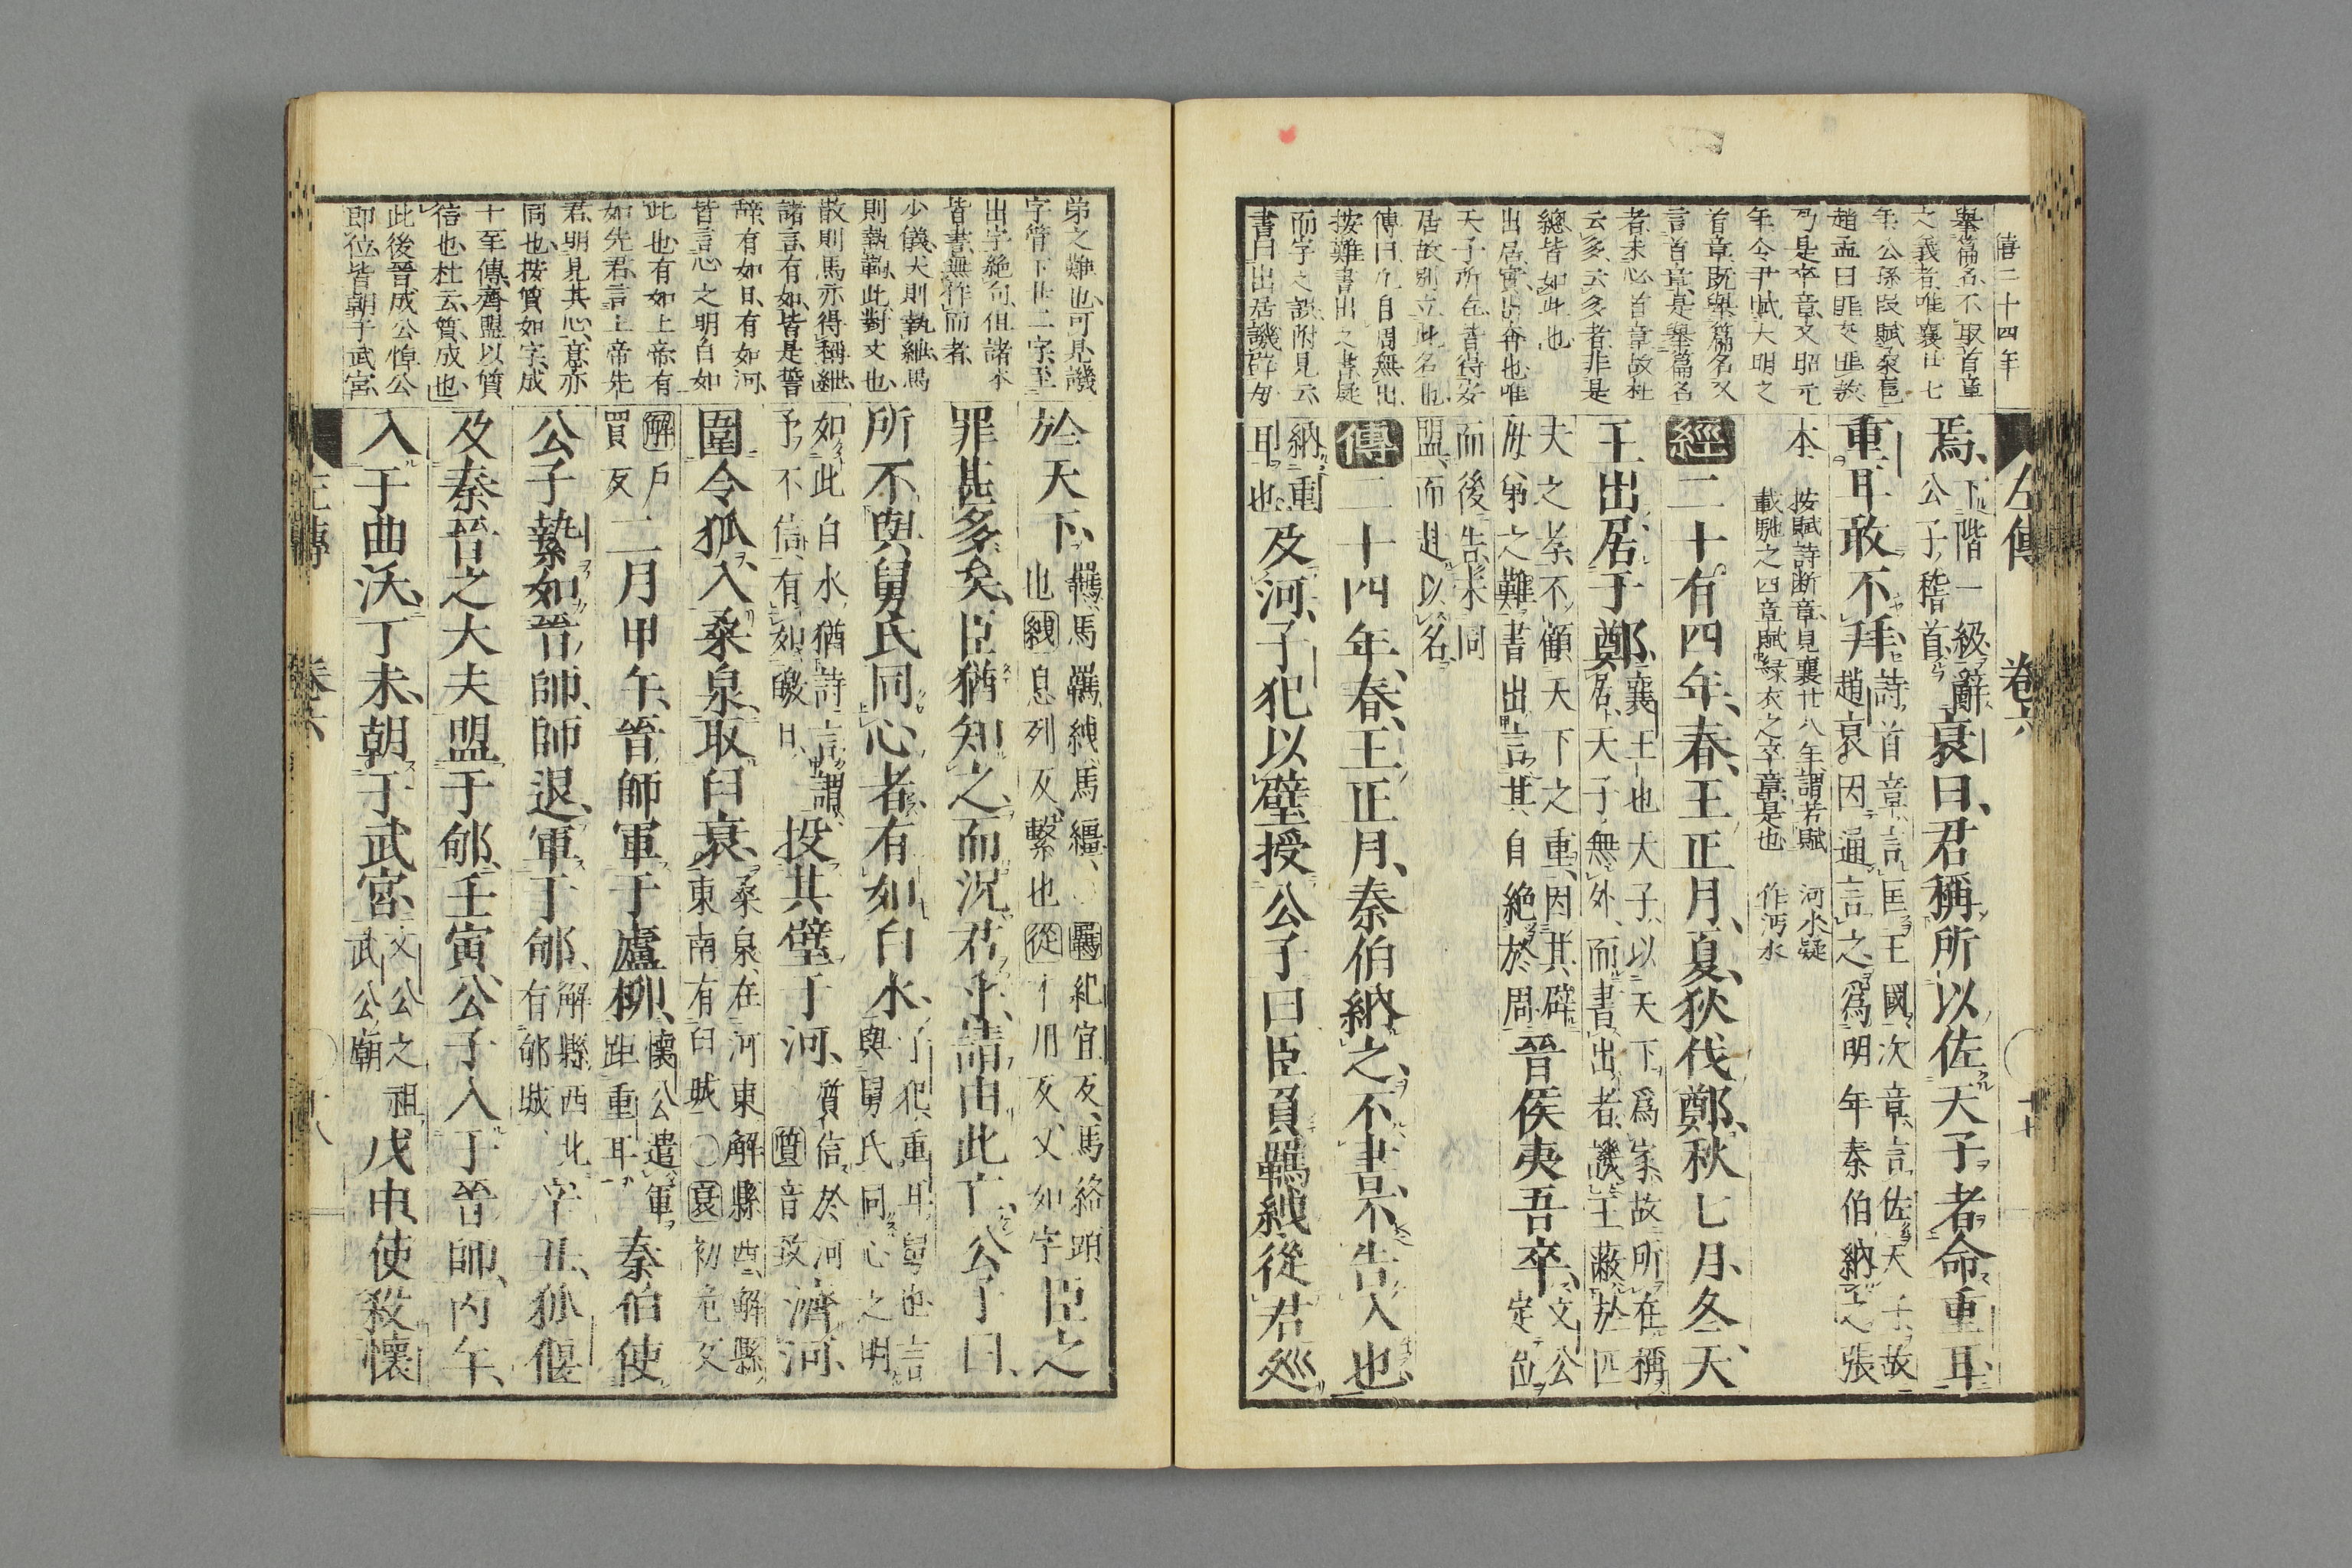 僖二十四年
擧篇名不取首章
之義者唯襄廿七
年公孫段賦桑扈
趙孟曰匪交匪敖
乃是卒章又昭元
年令尹賦大明之
首章既擧篇名又
言首章是擧篇名
者未必首章故杜
云多云多者非是
總皆如此也
出居實出奔也唯
天子所在皆得安
居故別立此名也
傳曰凡自周無出
按難書出之書疑
而字之誤附見云
書曰出居譏辟母
左傳 卷六
焉下階一級辭
公子稽首衰曰君稱所以佐天子者命重耳
重耳敢不拜詩首章言匡王國次章言佐天子故
趙衰因通言之爲明年秦伯納之張
本
按賦詩断章見襄廿八年謂若賦
載馳之四章賦緑衣之卒章是也
河水疑
作沔水
經二十有四年春王正月夏狄伐鄭秋七月冬天
王出居于鄭襄王也天子以天下爲家故所在稱
居天子無外而書出者譏王蔽於匹
夫之孝不顧天下之重因其辟
母弟之難書出言其自絶於周晉侯夷吾卒文公
定位
而後告未同
盟而赴以名
傳二十四年春王正月秦伯納之不書不告入也
納重
耳也及河子犯以璧授公子曰臣負羈絏從君巡
弟之難也可見譏
字管下廿二字至
出字絶句但諸本
皆書無作而者
少儀犬則執緤馬
則執靮此對文也
散則馬亦得稱紲
諸言有如皆是誓
辭有如日有如河
皆言心之明白如
此也有如上帝有
如先君言上帝先
君明見其心意亦
同也按質如字成
十至傳齊盟以質
信也杜云質成也
此後晉成公悼公
即位皆朝于武宮
於天下羈馬羈絏馬繮羈紀宜反馬絡頭
也絏息列反繫也從才用反又如字臣之
罪甚多矣臣猶知之而況君乎請由此亡公子曰
所不與舅氏同心者有如白水子犯重耳舅也言
與舅氏同心之明
如此白水猶詩言謂
予不信有如皦日投其璧于河質信於河
質音致濟河
圍令狐入桑泉取臼衰桑泉在河東解縣西解縣
東南有臼城○衰初危反
解戶
買反二月甲午晉師軍于廬柳懷公遣軍
距重耳秦伯使
公子縶如晉師師退軍于郇解縣西北
有郇城辛丑狐偃
及秦晉之大夫盟于郇壬寅公子入于晉師丙午
入于曲沃丁未朝于武宮文公之祖
武公廟戊申使殺懷